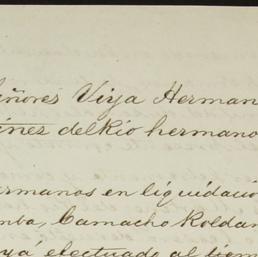 ñores Vixa Herman
inez del Rio hermano
ermanos en liquidació
mba, Camacho Roldan
yá efectuado al tiem